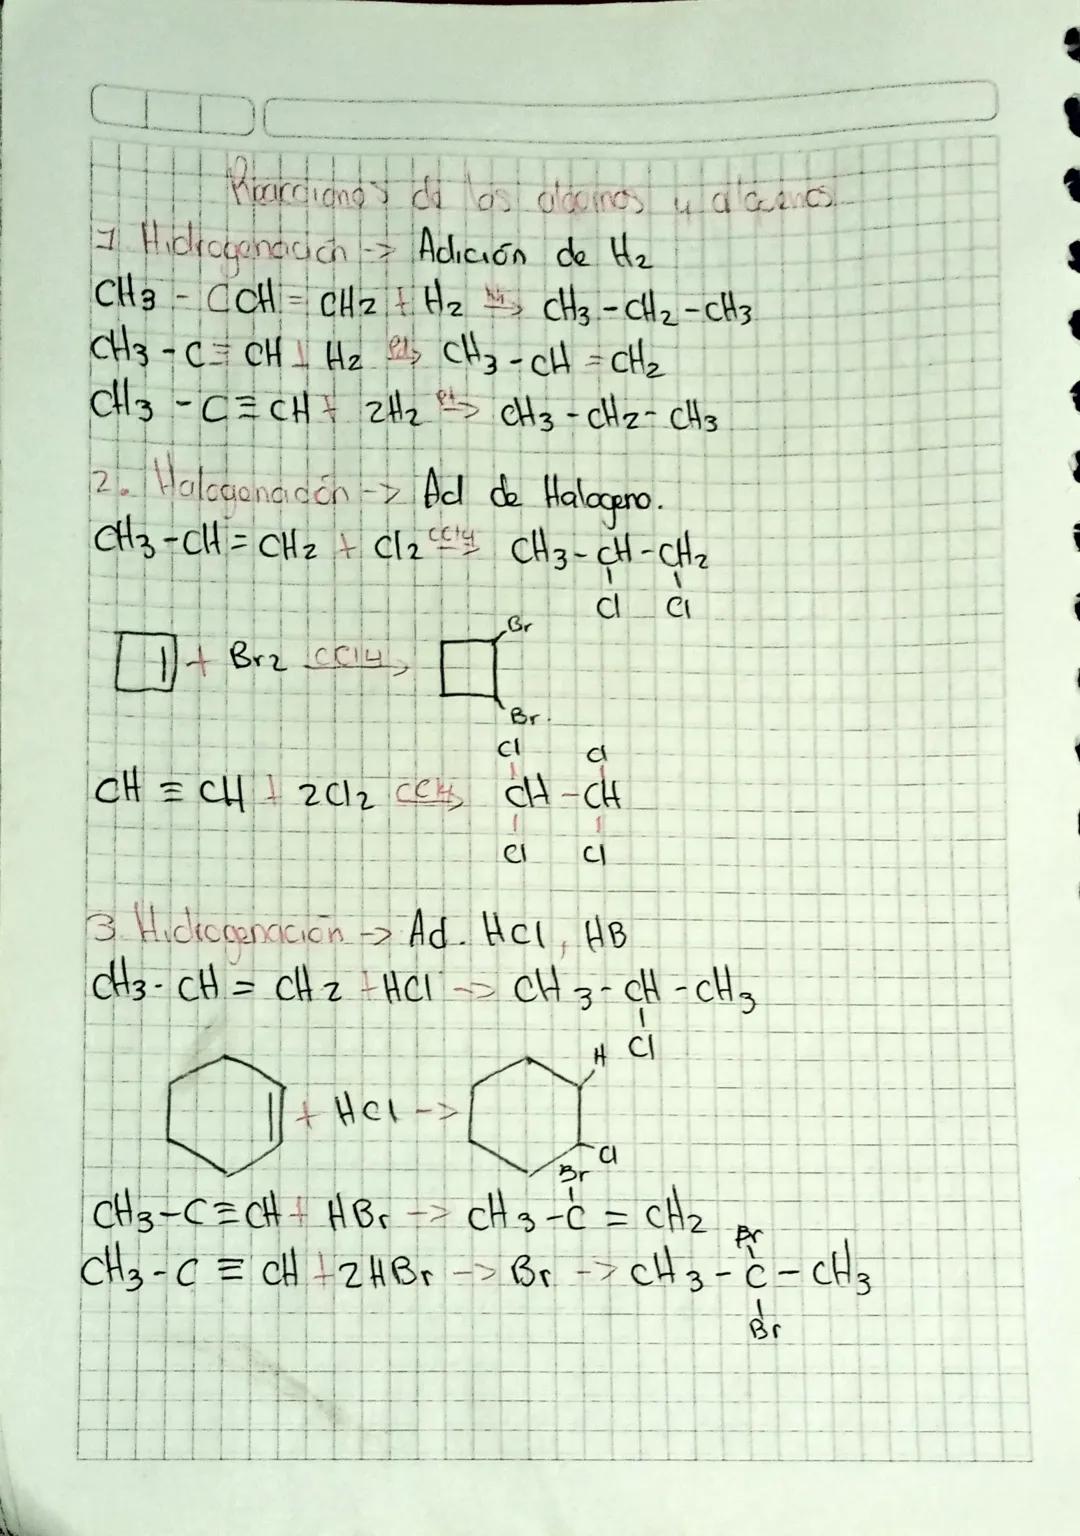 Reacciones de los alquinos y alquenos
1 Hidrogenación -> Adición de H2
CH3 - CCH = CH2 + H2 Ni-> CH3 - CH2 - CH3
CH3 - C ≡ CH + H2 Pd-> CH3 - CH = CH2
CH3 - C ≡ CH + 2H2 Pt-> CH3 - CH2 - CH3
2. Halogenación -> Ad de Halogeno.
CH3 - CH = CH2 + Cl2 CCl4-> CH3 - CH - CH2
Cl Cl
Br
+ Br2 CCl4->
Br.
Cl Cl
CH ≡ CH + 2Cl2 CCl4-> CH - CH
Cl Cl
3. Hidrogenación -> Ad. HCl, HB
CH3 - CH = CH2 + HCl -> CH3 - CH - CH3
H Cl
+ HCl ->
Cl
Br
CH3 - C ≡ CH + HBr -> CH3 - C = CH2
Br
CH3 - C ≡ CH + 2HBr -> Br -> CH3 - C - CH3
Br